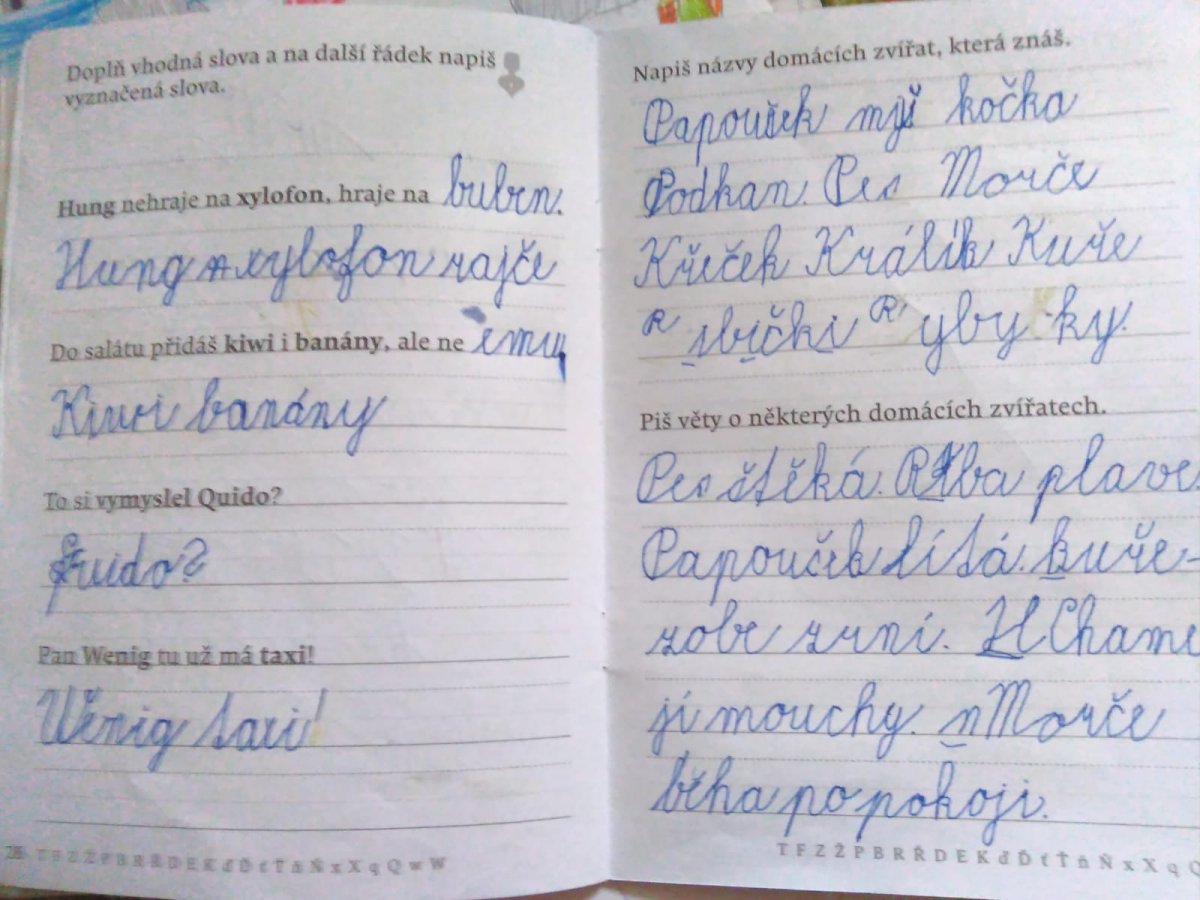 Doplň vhodná slova a na další řádek napiš
vyznačená slova.
Hung nehraje na xylofon, hraje na buben.
Hung xylofon rajče
Do salátu přidáš kiwi i banány, ale ne
Kiwi banány
To si vymyslel Quido?
Quido?
Pan Wenig tu už má taxi!
Wěnig taxi!
28 T F Z Ž P B R Ř D E K ď Ď ť Ť ň Ň x X q Q w W
Napiš názvy domácích zvířat, která znáš.
Papoušek myš kočka
Podkan. Pes Morče
Křeček Králík Kuře
R ybičky R yby ky.
Piš věty o některých domácích zvířatech.
Pes štěká. Ryba plave
Papoušek lítá. kuře-
zobe zrní. Cham
jí mouchy. Morče
běha po pokoji.
T F Z Ž P B R Ř D E K ď Ď ť Ť ň Ň x X q Q